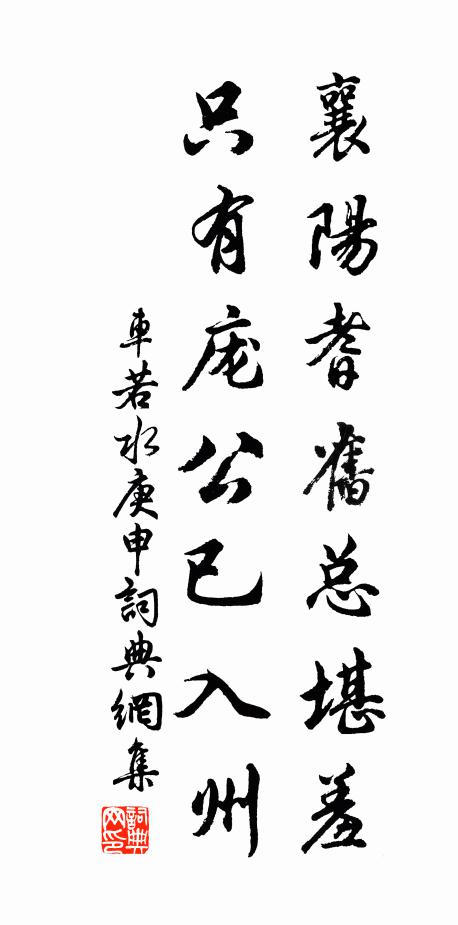 襄陽耆舊总堪羞
只有庞公已入州
車若水庚申詞典網集
詞典网印